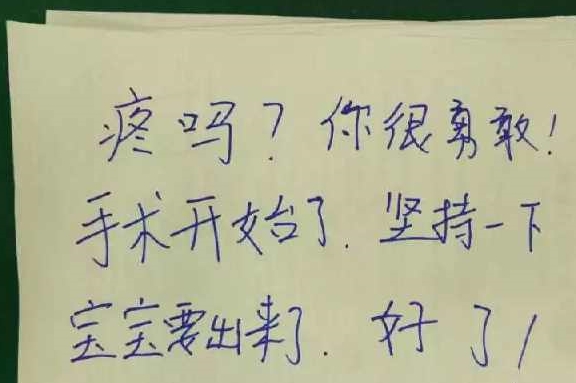 疼吗？你很勇敢！
手术开始了．坚持一下
宝宝要出来了．好了！